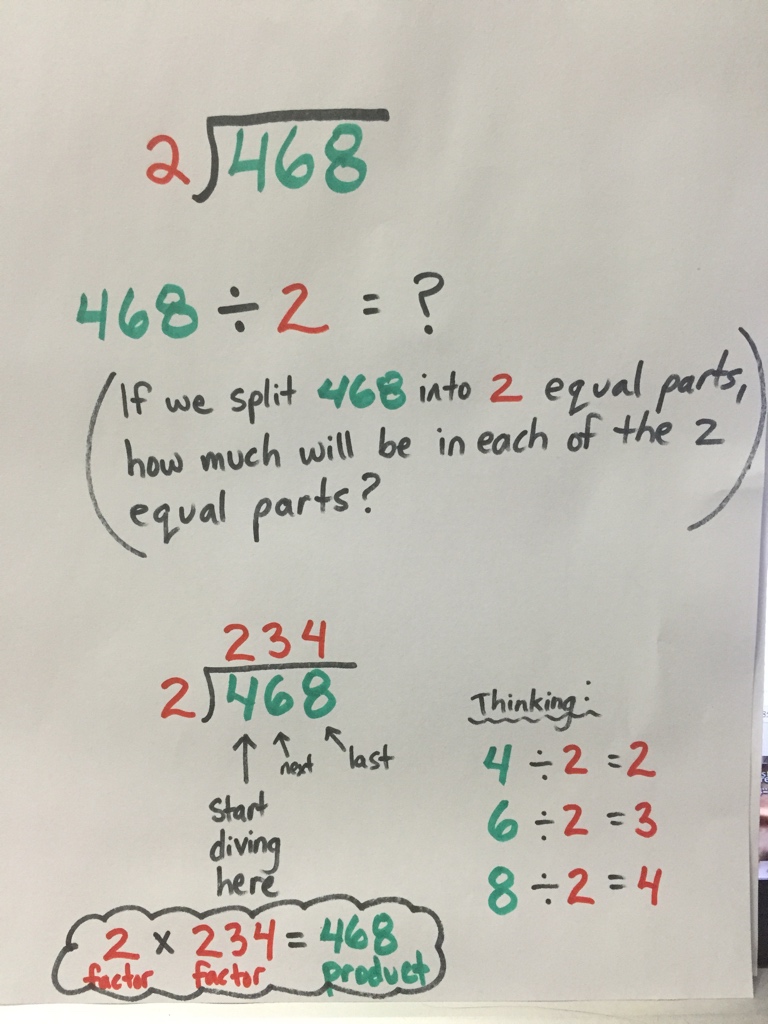 2)468
468 ÷ 2 = ?
(If we split 468 into 2 equal parts,
how much will be in each of the 2
equal parts?)
234
2)468
next
last
Start
diving
here
Thinking:
4 ÷ 2 = 2
6 ÷ 2 = 3
8 ÷ 2 = 4
2 x 234 = 468
factor factor product